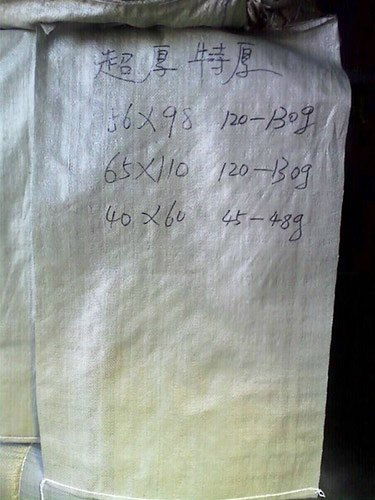 超厚 特厚
56×98 120-130g
65×110 120-130g
40×60 45-48g